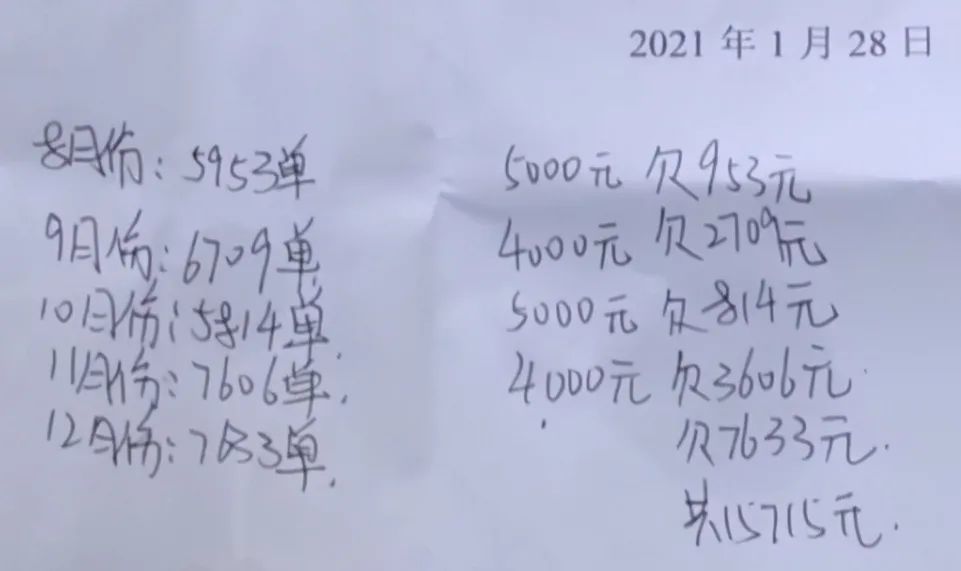 2021 年 1 月 28 日
8月份：5953单 5000元 欠953元
9月份：6709单 4000元 欠2709元
10月份：5814单 5000元 欠814元
11月份：7606单. 4000元 欠3606元.
12月份：7633单. 欠7633元.
共15715元.